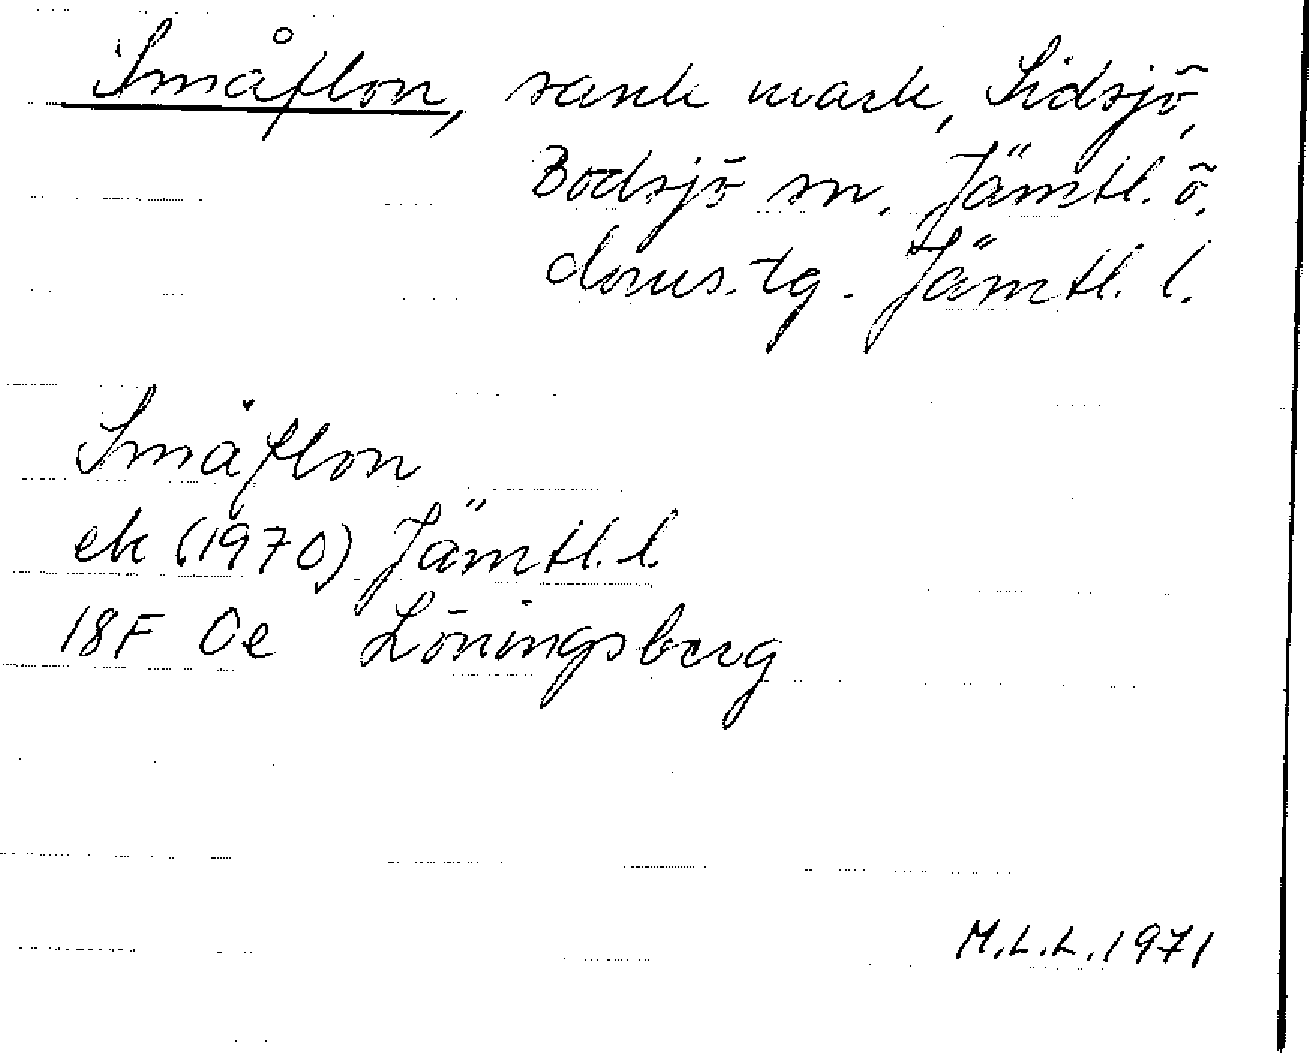 Småflon, sank mark, Sidsjö,
Bodsjö sn. Jämtl. ö.
doms.tg. Jämtl. l.
Småflon
ek (1970) Jämtl. l.
18F 0e Löningsberg
M.L.L. 1971